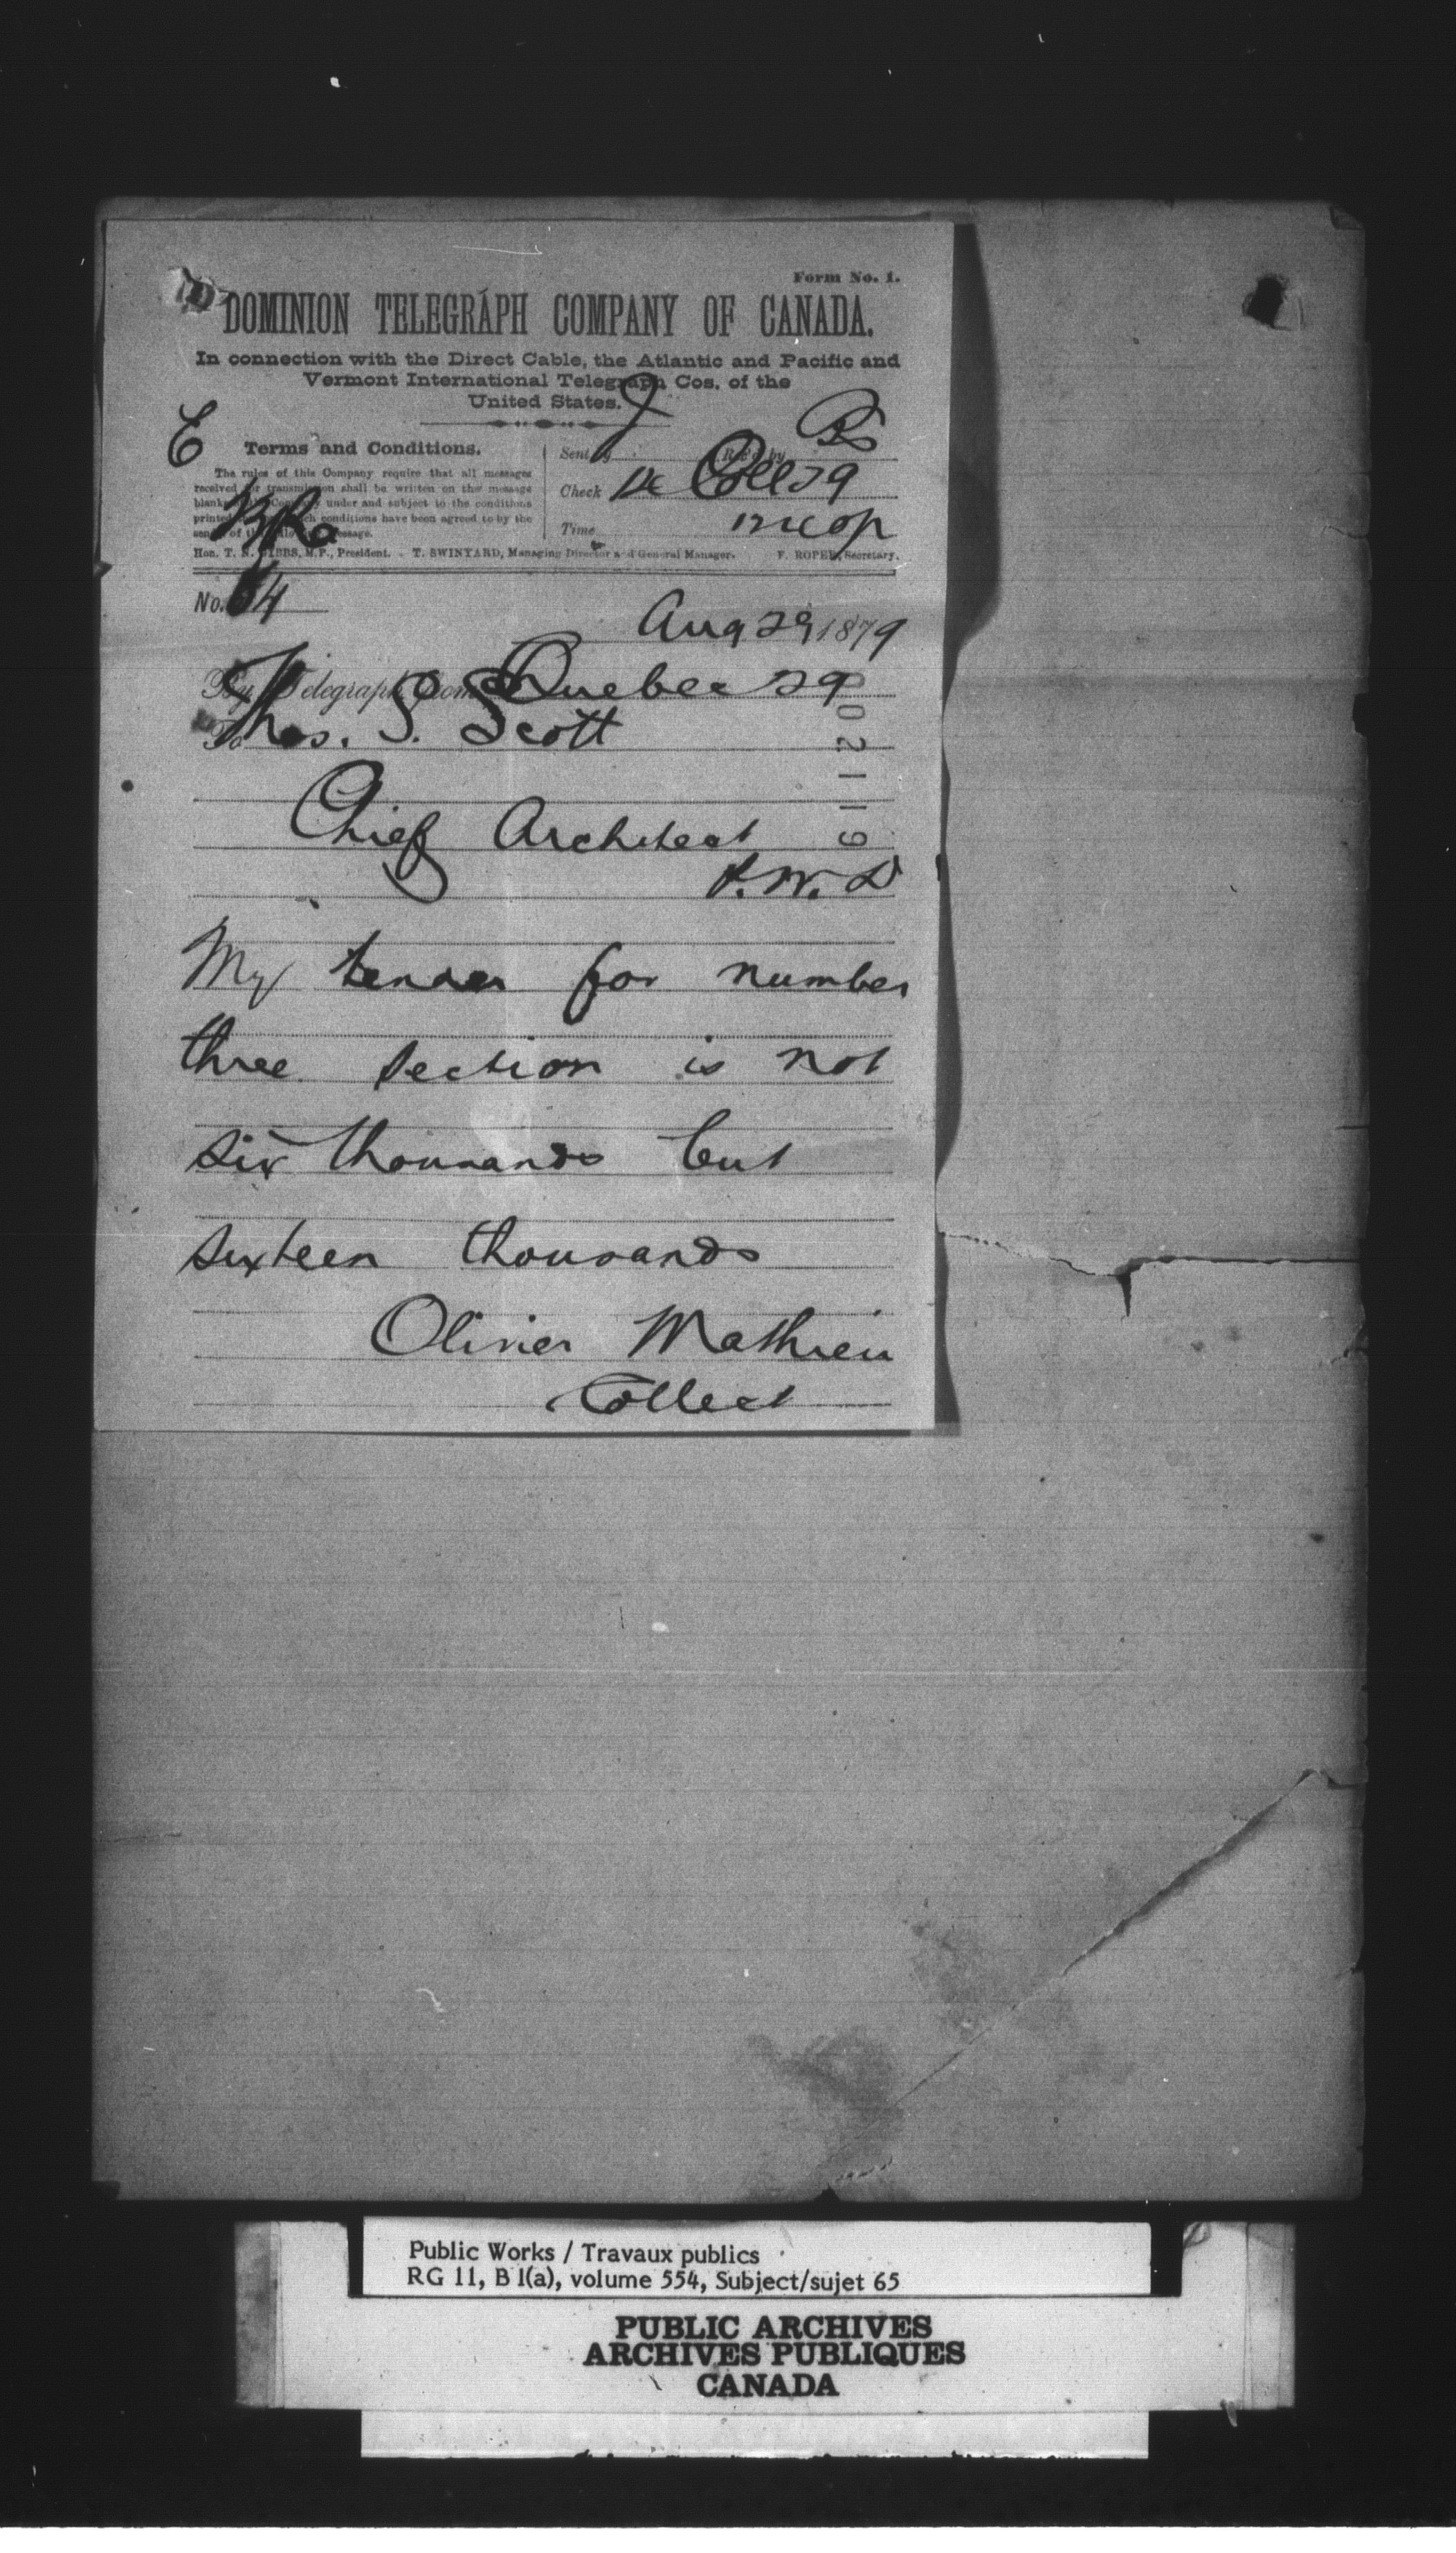 Form No. 1.
DOMINION TELEGRAPH COMPANY OF CANADA.
In connection with the Direct Cable, the Atlantic and Pacific and
Vermont International Telegraph Cos. of the
United States.
E
Terms and Conditions.
The rules of this Company require that all messages
received for transmission shall be written on the message
blanks of the Company under and subject to the conditions
printed conditions have been agreed to by the
of the message.
Sent by Rec'd by
Check Coll 29
Time
Hon. T. N. GIBBS, M.P., President. T. SWINYARD, Managing Director and General Manager. F. ROPER, Secretary.
No. 64
Aug 29 1879
By Telegraph from Quebec 29
To Thos. S. Scott
Chief Architect
P. W. D
002119
My tender for number
three section is not
six thousands but
sixteen thousands
Olivier Mathieu
Collect
Public Works / Travaux publics
RG 11, B 1(a), volume 554, Subject/sujet 65
PUBLIC ARCHIVES
ARCHIVES PUBLIQUES
CANADA